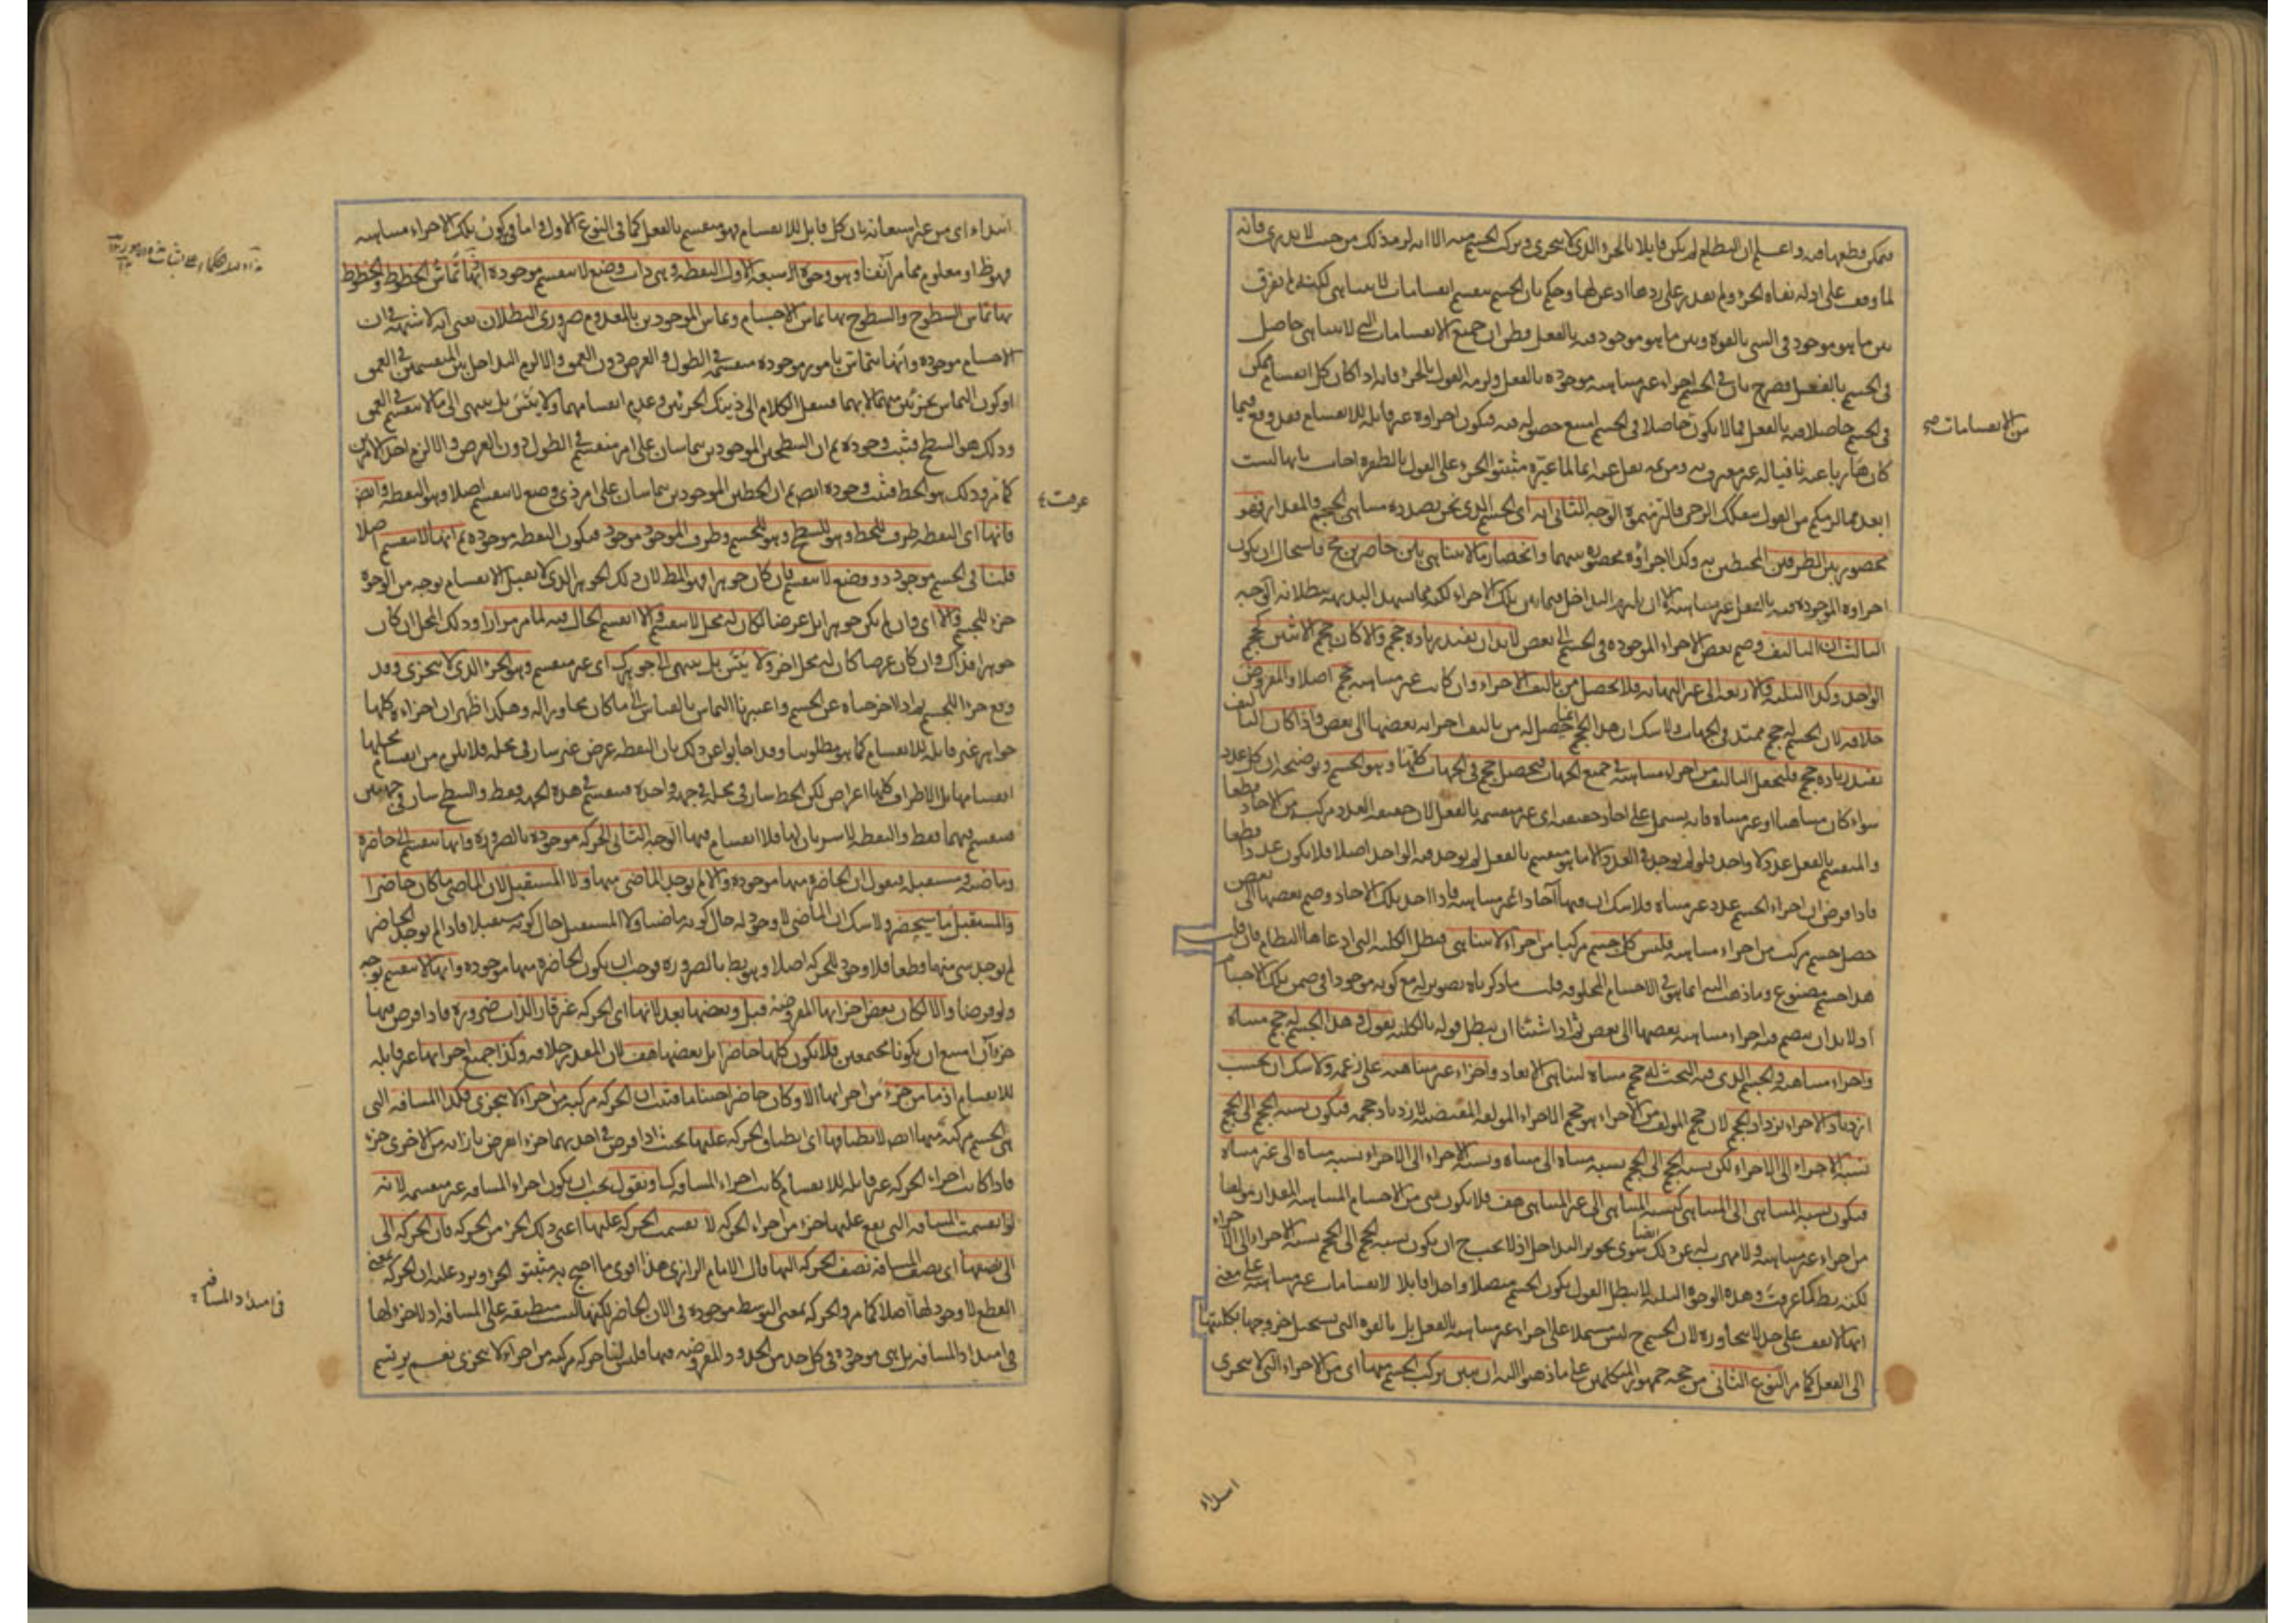 فيمكن قطعها فيه واعلم ان النظام لم يكن قايلا بالجزء الذى لا يتجزى وتركب الجسم منه الا انه لزمه ذلك من حيث لا يدرى فانه
لما وقف على ادلة نفاة الجزء ولم يقدر على ردها اذعن لها وحكم بان الجسم ينقسم انقسامات لا تتناهى لكنه لم يفرق
بين ما هو موجود فى الشى بالقوة وبين ما هو موجود فيه بالفعل فظن ان جميع الانقسامات التى لا تتناهى حاصل
فى الجسم بالفعل فصرح بان فى الجسم اجزاء غير متناهية موجوده بالفعل ولزمه القول بالجزء فانه اذا كان كل انقسام يمكن
من الانقسامات صح
فى الجسم حاصلا فيه بالفعل فما لا يكون حاصلا فى الجسم امتنع حصوله فيه فيكون اجزاوه غير قابلة للانقسام فقد وقع فيما
كان هاربا عنه نافيا له غير معترف به ومن ثمه نقل عنه انه لما عيره مثبتوا الجزء على القول بالطفرة اجاب بانها ليست
ابعد مما لزمكم من القول بتفكك الرحى فالتزمتموه الوجه الثانى انه اى الجسم الذى نحن بصدده متناهى الحجم والمقدار فهو
محصور بين الطرفين المحيطين به وكذا اجزاؤه محصورة بينهما وانحصار ما لا يتناهى بين حاصرين مح فاستحال ان يكون
اجزاوه الموجودة فيه بالفعل غير متناهية الا ان يلتزم التداخل فيما بين تلك الاجزاء لكنه مما يشهد البديهة ببطلانه الوجه
الثالث ان التاليف وضم بعض الاجزاء الموجودة فى الجسم الى بعض لا بد ان يفيد زيادة حجم والا كان حجم الاثنين كحجم
الواحد وكذا الثلثة والاربعة الى غير النهاية فلا يحصل من تاليف الاجزاء وان كانت غير متناهية حجم اصلا والمفروض
خلافه لان الجسم له حجم ممتد فى الجهات ولا شك ان هذا الحجم انما يحصل له من تاليف اجزائه بعضها الى بعض فاذا كان التاليف
يفيد زيادة حجم فلنجعل التاليف من اجزاء متناهية فى جميع الجهات فيحصل حجم فى الجهات كلها وهو الجسم وتوضيحه ان كل عدد
سواء كان متناهيا او غير متناه فانه يشتمل على احاد حقيقية اى غير منقسمة بالفعل لان حقيقة العدد مركبة من الاحاد قطعا
والمنقسم بالفعل عدد لا واحد فلو لم يوجد فى العدد الا ما هو منقسم بالفعل لم يوجد فيه الواحد اصلا فلا يكون عددا قطعا
فاذا فرض ان اجزاء الجسم عدد غير متناه فلا شك ان فيها آحادا غير متناهية فاذا اخذ تلك الاحاد وضم بعضها الى بعض
حصل جسم مركب من اجزاء متناهية فليس كل جسم مركبا من اجزاء لا تتناهى فبطل الكلية التى ادعاها النظام فان قلت
هذا جسم مصنوع وما ذهب اليه انما هو فى الاجسام المخلوقة قلت ما ذكرناه تصوير له مع كونه موجودا فى ضمن تلك الاجسام
اذ لا بد ان ينضم فيه اجزاء متناهية بعضها الى بعض ثم اذا شئنا ان نبطل قوله بالكلية نقول هذا الجسم له حجم متناه
واجزاء متناهية والجسم الذى فيه البحث له حجم متناه لتناهى الابعاد واجزاء غير متناهية على زعمه ولا شك ان بحسب
ازدياد الاجزاء يزداد الحجم لان حجم المولف من الاجزاء هو حجم الاجزاء المولفة المقتضية لازدياد حجمه فيكون نسبة الحجم الى الحجم
نسبة الاجزاء الى الاجزاء لكن نسبة الحجم الى الحجم نسبة متناه الى متناه ونسبة الاجزاء الى الاجزاء نسبة متناه الى غير متناه
فيكون نسبة المتناهى الى المتناهى كنسبة المتناهى الى غير المتناهى هف فلا يكون شى من الاجسام المتناهية المقدار مولفا
من اجزاء غير متناهية ولا مهرب له عن ذلك ايضا سوى تجويز التداخل اذ لا يجب ح ان يكون نسبة الحجم الى الحجم نسبة الاجزاء الى الاجزاء
لكنه بط كما عرفت وهذه الوجوه الثلثة لا تبطل القول بكون الجسم متصلا واحدا قابلا لانقسامات غير متناهية على معنى
انها لا تقف على حد لا تتجاوزه لان الجسم ح ليس مشتملا على اجزاء غير متناهية بالفعل بل بالقوة التى يستحيل خروجها بكليتها
الى الفعل كما مر النوع الثانى من حجة جمهور المتكلمين على ما ذهبوا اليه ان نبين تركب الجسم منها اى من الاجزاء التى لا تتجزى
ابتداء
ابتداء اى من غير استعانة بان كل قابل للانقسام فهو منقسم بالفعل كما فى النوع الاول واما كون تلك الاجزاء متناهية
فهو ظ او معلوم مما مر آنفا وهو وجوه الاربعة الاول النقطة وهى ذات وضع لا ينقسم موجودة اذ بها تماس الخطوط والخطوط
بها تماس السطوح والسطوح بها تماس الاجسام وتماس الموجودين بالمعدوم ضرورى البطلان يعنى انه لا شبهة فى ان
الاجسام موجودة وانها تتماس بامور موجودة منقسمة فى الطول والعرض دون العمق والا لزم التداخل بين المنقسمين فى العمق
او كون التماس بجزئين منهما لا بهما فننقل الكلام الى ذينك الجزئين وعدم انقسامهما ولا يتس بل ينتهى الى ما لا ينقسم فى العمق
وذلك هو السطح فثبت وجوده ثم ان السطحين الموجودين يتماسان على امر منقسم فى الطول دون العرض والا لزم احد الامرين
كما مر وذلك هو الخط فثبت وجوده ايض ثم ان الخطين الموجودين يتماسان على امر ذى وضع لا ينقسم اصلا وهو النقطة وايض
عرفت
فانها اى النقطة طرف للخط وهو للسطح وهو للجسم وطرف الموجود موجود فيكون النقطة موجودة ثم انها لا تنقسم اصلا
قلنا فى الجسم موجود ذو وضع لا ينقسم فان كان جوهرا فهو المطلوب لان ذلك الجوهر الذى لا يقبل الانقسام بوجه من الوجوه
جزء للجسم والا اى وان لم يكن جوهرا بل عرضا لكان له محل لا ينقسم والا انقسم الحال فيه لما مر مرارا وذلك المحل ان كان
جوهرا فذاك وان كان عرضا كان له محل اخر ولا يتس بل ينتهى الى جوهر كك اى غير منقسم وهو الجزء الذى لا يتجزى وقد
وقع جزءا للجسم ثم اذا اخرجناه عن الجسم واعتبرنا التماس بالقياس الى ما كان مجاورا له وهكذا ظهر ان اجزاءه كلها
جواهر غير قابلة للانقسام كما هو مطلوبنا وقد اجابوا عن ذلك بان النقطة عرض غير سار فى محله فلا يلزم من انقسام محلها
انقسامها بل الاطراف كلها اعراض لكن الخط سار فى محله فى جهة واحدة فينقسم فى هذه الجهة فقط والسطح سار فى جهتين
فينقسم فيهما فقط والنقطة لا سريان لها فلا انقسام فيها الوجه الثانى الحركة موجودة بالضرورة وانها تنقسم الى حاضرة
وماضية ومستقبلة فنقول ان الحاضرة منها موجودة والا لم يوجد الماضى منها ولا المستقبل لان الماضى ما كان حاضرا
والمستقبل ما سيحضر ولا شك ان الماضى لا وجود له حال كونه ماضيا ولا المستقبل حال كونه مستقبلا فاذا لم يوجد الحاضر
لم يوجد شى منها قطعا فلا وجود للحركة اصلا وهو بط بالضرورة فوجب ان يكون الحاضرة منها موجودة وانها لا تنقسم بوجه
ولو فرضا والا لكان بعض اجزائها المفروضة قبل وبعضها بعد لانها اى الحركة غير قار الذات ضرورة فاذا فرض فيها
جزءآن امتنع ان يكونا مجتمعين فلا يكون كلها حاضرا بل بعضها هف لان المقدر خلافه وكذا جميع اجزائها غير قابلة
للانقسام اذ ما من جزء من اجزائها الا وكان حاضرا حينا ما فثبت ان الحركة مركبة من اجزاء لا تتجزى فكذا المسافة التى
هى الجسم مركبة منها ايض لانطباقها اى انطباق الحركة عليها بحيث اذا فرض فى احديهما جزء انفرض بازائه من الاخرى جزء
فاذا كانت اجزاء الحركة غير قابلة للانقسام كانت اجزاء المسافة كك او نقول يجب ان يكون اجزاء المسافة غير منقسمة لانه
لو انقسمت المسافة التى يقع عليها جزء من اجزاء الحركة لا نقسمت الحركة عليها اعنى ذلك الجزء من الحركة فان الحركة الى
الى نصفها اى نصف المسافة نصف الحركة اليها قال الامام الرازى هذا اقوى ما احتج به مثبتوا الجزء ويرد عليه ان الحركة بمعنى
القطع لا وجود لها اصلا كما مر والحركة بمعنى التوسط موجودة فى الان الحاضر لكنها ليست منطبقة على المسافة اذ لا جزء لها
فى امتداد المسافة
فى امتداد المسافة بل هى موجودة فى كل حد من الحدود المفروضة فيها فليس لنا حركة مركبة من اجزاء لا تتجزى نعم يرتسم